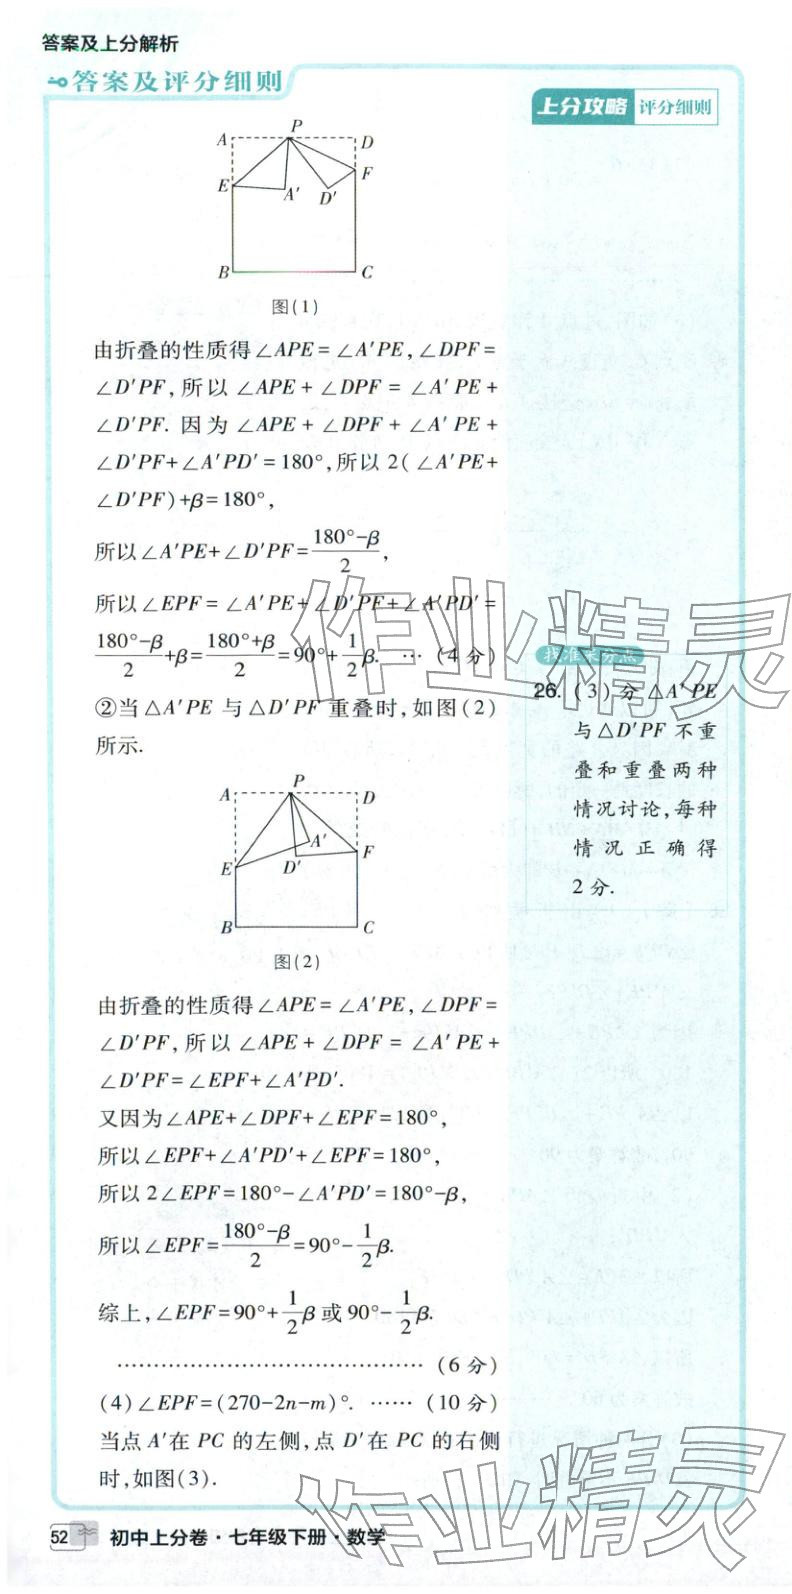 答案及上分解析
答案及评分细则
上分攻略 评分细则
A P D
E A' D' F
B C
图(1)
由折叠的性质得∠APE=∠A'PE,∠DPF=
∠D'PF,所以∠APE+∠DPF=∠A'PE+
∠D'PF.因为∠APE+∠DPF+∠A'PE+
∠D'PF+∠A'PD'=180°,所以2(∠A'PE+
∠D'PF)+β=180°,
所以∠A'PE+∠D'PF=\frac{180°-β}{2},
所以∠EPF=∠A'PE+∠D'PF+∠A'PD'=
\frac{180°-β}{2}+β=\frac{180°+β}{2}=90°+\frac{1}{2}β. …(4分)
②当△A'PE与△D'PF重叠时,如图(2)
所示.
A P D
E A' D' F
B C
图(2)
由折叠的性质得∠APE=∠A'PE,∠DPF=
∠D'PF,所以∠APE+∠DPF=∠A'PE+
∠D'PF=∠EPF+∠A'PD'.
又因为∠APE+∠DPF+∠EPF=180°,
所以∠EPF+∠A'PD'+∠EPF=180°,
所以2∠EPF=180°-∠A'PD'=180°-β,
所以∠EPF=\frac{180°-β}{2}=90°-\frac{1}{2}β.
综上,∠EPF=90°+\frac{1}{2}β或90°-\frac{1}{2}β.
……………………………………(6分)
(4)∠EPF=(270-2n-m)°. ……(10分)
当点A'在PC的左侧,点D'在PC的右侧
时,如图(3).
找准采分点
26.(3)分△A'PE
与△D'PF不重
叠和重叠两种
情况讨论,每种
情况正确得
2分.
作业精灵
作业精灵
52 初中上分卷·七年级下册·数学